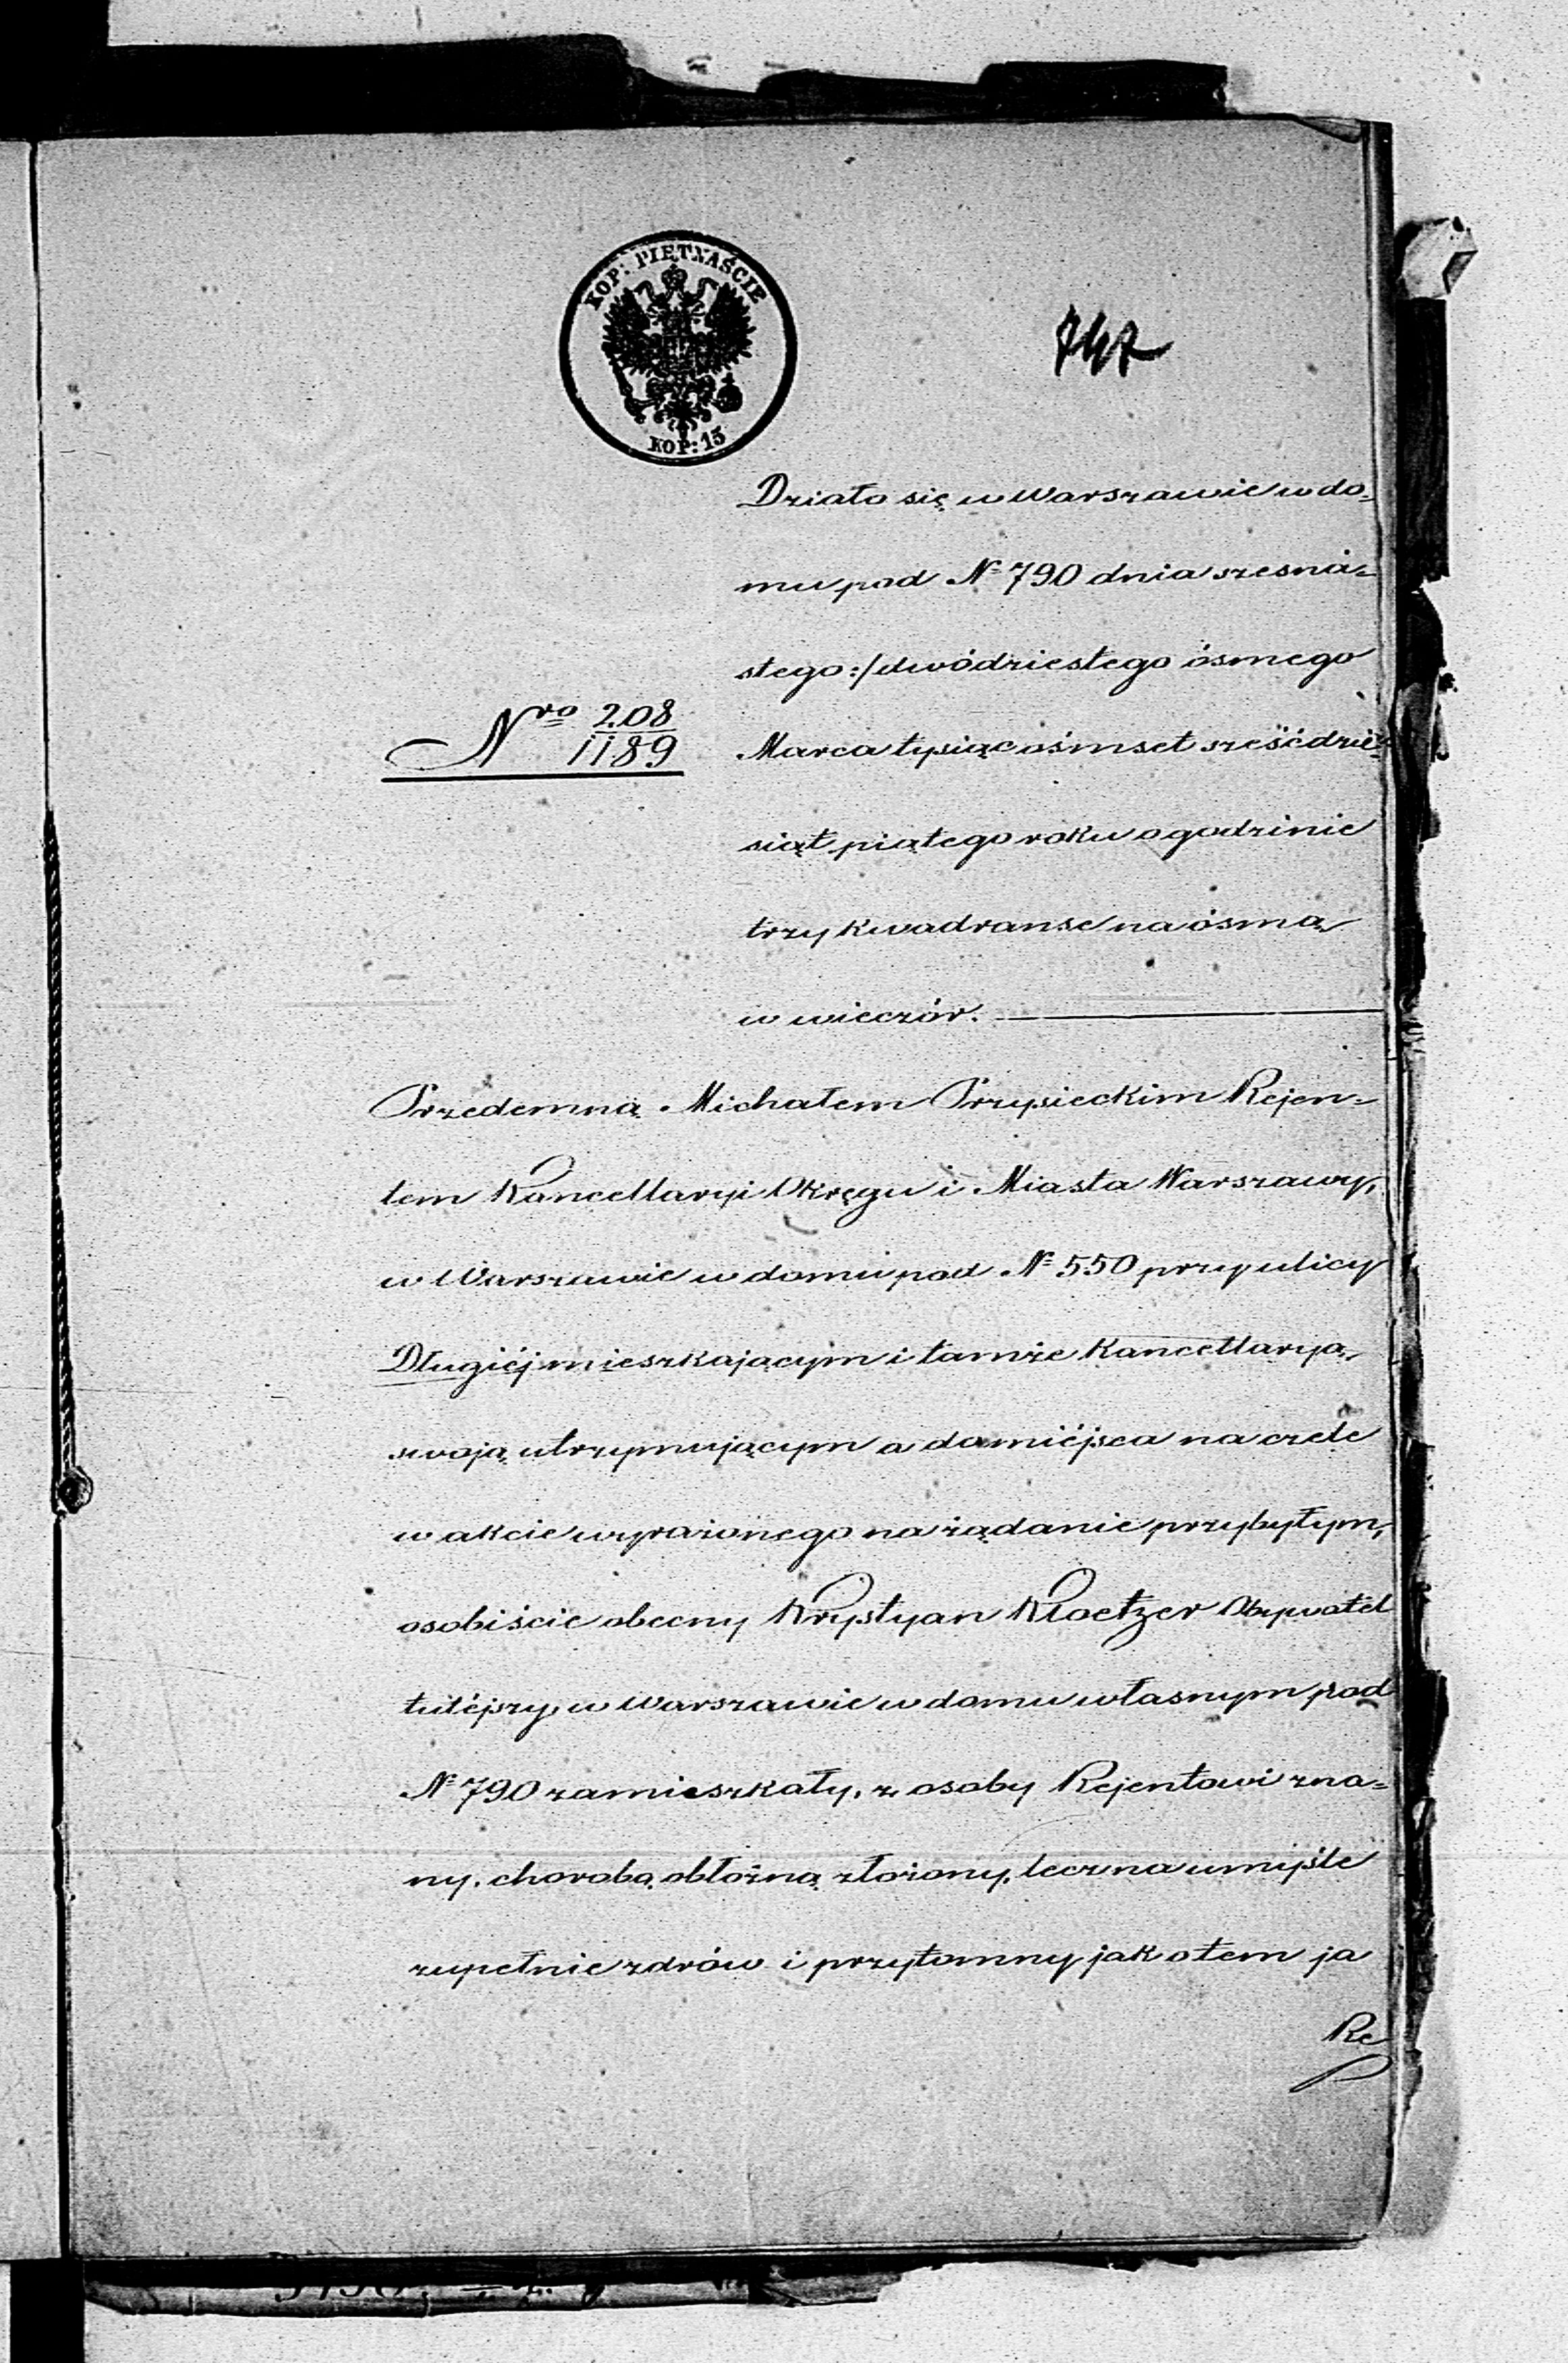 KOP: PIĘTNAŚCIE
KOP: 15
747
Działo się w Warszawie w do-
mu pod N= 790 dnia szesna-
stego :/ dwódziestego ósmego
Nro 208
1189
Marca tysiąc ośmset sześćdzie-
siąt piątego roku o godzinie
trzy kwadranse na ósmą
w wieczór.
Przedemną Michałem Przysieckim Rejen-
tem Kancellaryi Okręgu i Miasta Warszawy,
w Warszawie w domu pod N= 550 przy ulicy
Długiéj mieszkającym i tamże Kancellaryą
swoją utrzymującym a do miéjsca na czele
w akcie wyrażonego na żądanie przybyłym,
osobiście obecny Krystyan Kloetzer Obywatel
tutéjszy, w Warszawie w domu własnym pod
N= 790 zamieszkały, z osoby Rejentowi zna-
ny, chorobą obłożną złożony, lecz na umyśle
zupełnie zdrów i przytomny jak o tem ja
Re